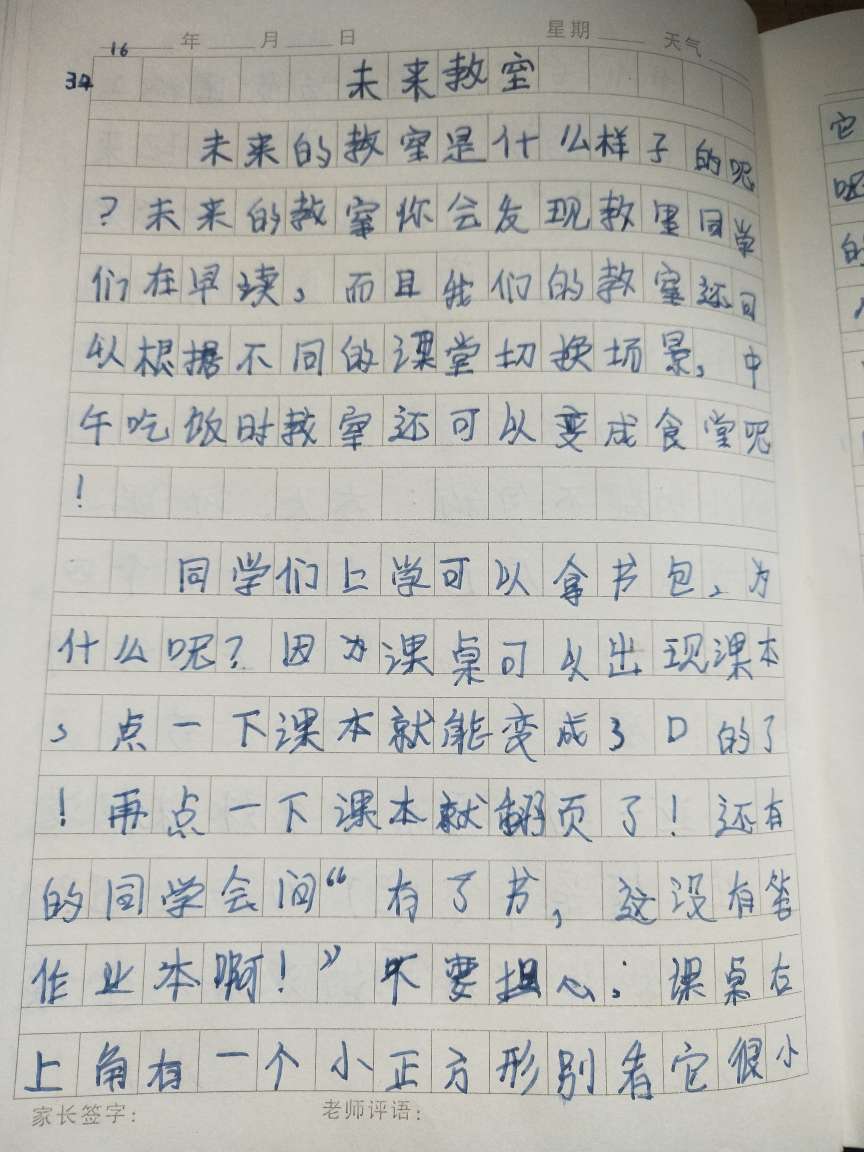 16 年 月 日 星期 天气
34 未来教室
未来的教室是什么样子的呢
？未来的教室你会发现教里同学
们在早读，而且我们的教室还可
以根据不同的课堂切换场景，中
午吃饭时教室还可以变成食堂呢
！
同学们上学可以拿书包，为
什么呢？因为课桌可以出现课本
，点一下课本就能变成3D的了
！再点一下课本就翻页了！还有
的同学会问“有了书，这没有答
作业本啊！”不要担心；课桌右
上角有一个小正方形别看它很小
家长签字： 老师评语：
它
呢
的